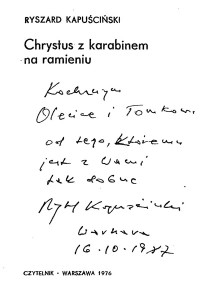 RYSZARD KAPUŚCIŃSKI
Chrystus z karabinem
na ramieniu
Kochanym
Oleńce i Tomkowi
od tego, któremu
jest z Wami
tak dobrze
Rysz Kapuściński
Warszawa
16.10.1977
CZYTELNIK · WARSZAWA 1976